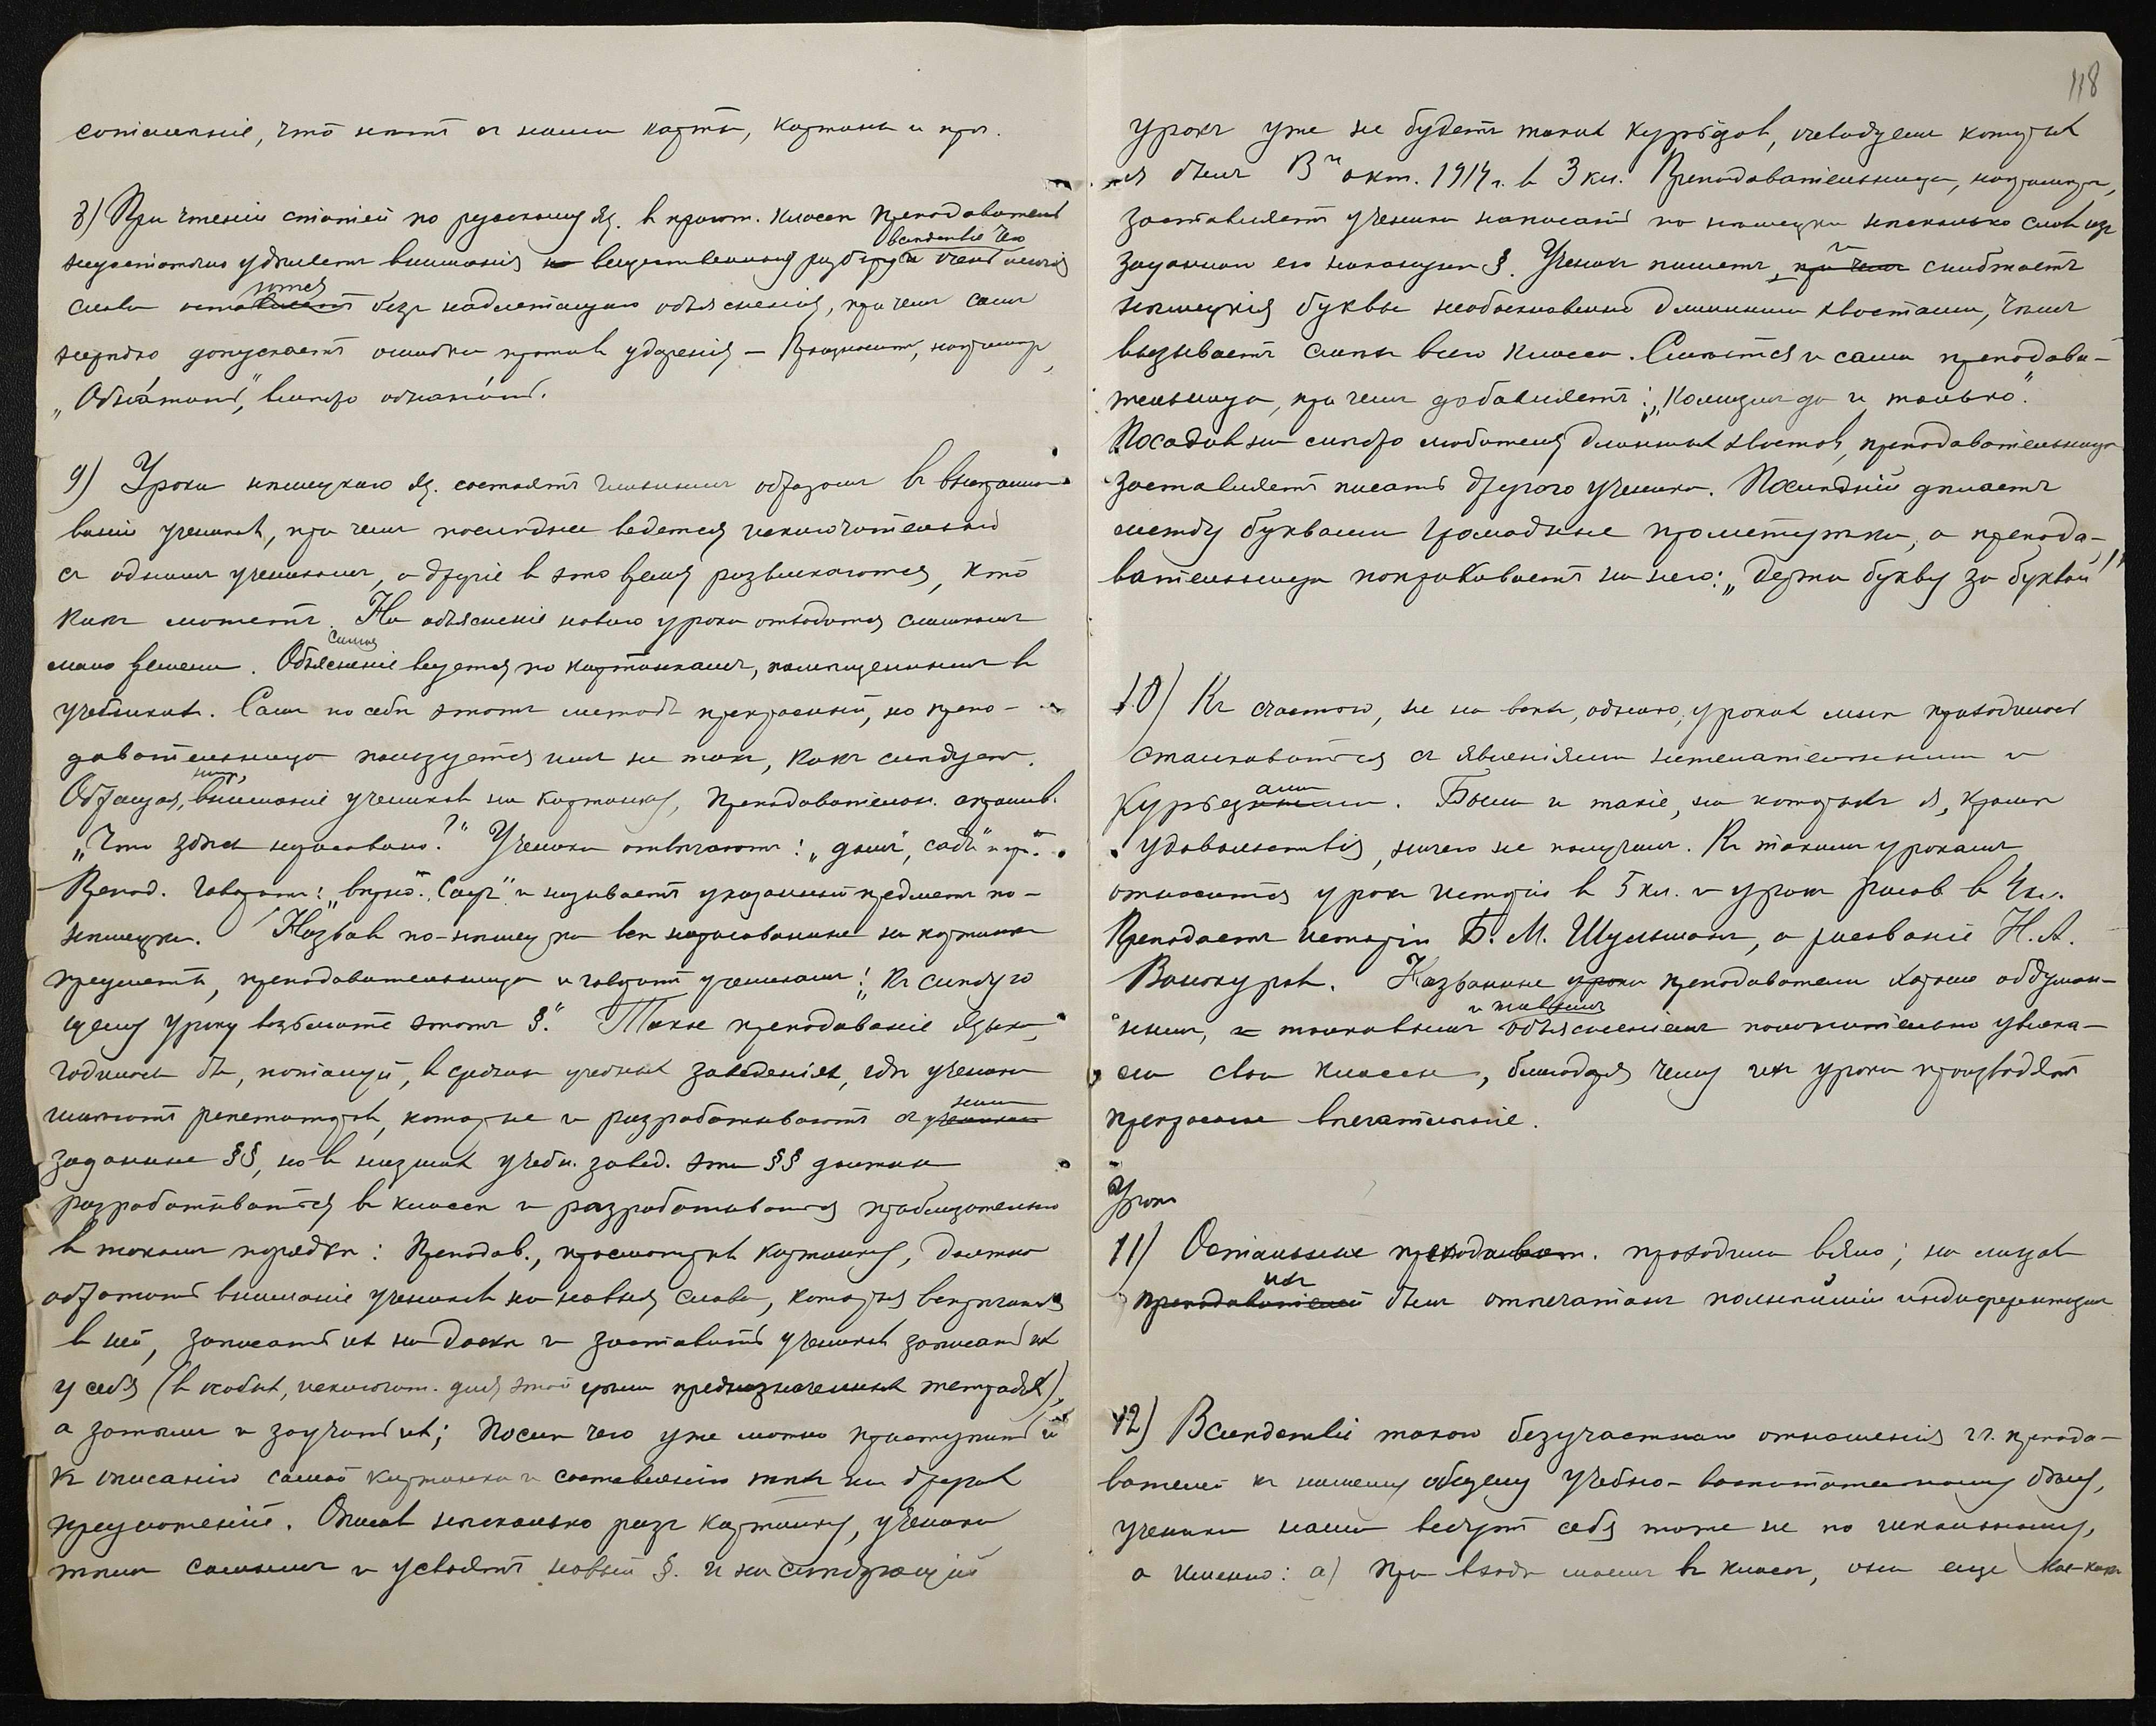 сожаленіе, что нѣтъ въ нашихъ карты, картины и проч.
8) При чтеніи статей по русскому яз. въ пригот. классѣ преподаватель
недостаточно удѣляетъ вниманія вещественному разбору, вслѣдствіе чего очень многія
слова остаются безъ надлежащаго объясненія, при чемъ самъ
нерѣдко допускаетъ ошибки противъ ударенія – Произноситъ, напримѣръ,
„Обня́тый", вмѣсто
9) Уроки нѣмецкаго яз. состоятъ главнымъ образомъ въ выспрашиванiи
ваніи учениковъ, при чемъ послѣднее ведется исключительно
съ однимъ ученикомъ, а другіе в это время развлекаются, кто
какъ можетъ. На объясненіе новаго урока отводится слишкомъ
мало времени. Самое Объясненіе ведется по картинкамъ, помѣщеннымъ въ
учебникѣ. Самъ по себѣ этотъ методъ прекрасный, но препо-
давательница пользуется имъ не такъ, какъ слѣдуетъ.
Обращая, напр., вниманіе учениковъ на картинку, преподавательн. спрашив.
„Что здѣсь нарисовано?" Ученики отвѣчаютъ: „домъ", „садъ" и пр.".
Препод. говоритъ: „вѣрно". и называетъ указанный предметъ по-
нѣмецки. Назвавъ по-нѣмецки всѣ нарисованные на картинкѣ
предметы, преподавательница и говоритъ ученикамъ: „Къ слѣдую
щему уроку возьмите этотъ §." Такое преподаваніе языка
годилось бы, пожалуй, въ средних учебныхъ заведеніях, гдѣ ученики
имѣютъ репетиторовъ, которые и разрабатываютъ съ ними
заданные §§, но въ низшихъ учебн. завед. эти §§ должны
разрабатываться въ классѣ и разрабатываются приблизительно
въ такомъ порядкѣ: Преподав., просмотрѣвъ картинку, должно
обратить вниманіе учениковъ на новыя слова, которыя встрѣчаются
въ ней, записать ихъ на доскѣ и заставить учениковъ записать ихъ
у себя (въ особыхъ, исключит. для этой цѣли предназначенныхъ тетрадяхъ),
а затѣмъ и заучить ихъ; Послѣ чего уже можно приступить и
къ описанію самой картинки и составленію тѣхъ или другихъ
предложеній. Описавъ нѣсколько разъ картинку, ученики
тѣмъ самымъ и усвоятъ новый §. и на слѣдующій
118
урокѣ уже не будетъ такихъ курьёзовъ, очевидцемъ которыхъ
я былъ 13го окт. 1914 г. въ 3 кл. Преподавательница, напримѣръ,
заставляетъ ученика написать по нѣмецки нѣсколько словъ изъ
заданнаго ею наканунѣ §. Ученикъ пишетъ, и при чемъ снабжаетъ
нѣмецкія буквы необыкновенно длинными хвостами, чѣмъ
вызываетъ смѣхъ всего класса. Смѣется и сама преподава-
тельница, при чемъ добавляетъ: „Комедія да и только".
Посадивъ на мѣсто любителя длинныхъ хвостовъ, преподавательница
заставляетъ писать другого ученика. Послѣдній дѣлаетъ
между буквами громадные промежутки, а препода-
вательница покрикиваетъ на него: „Держи букву за буквой!"
10) Къ счастью, не на всѣхъ, однако, урокахъ мнѣ приходилось
сталкиваться съ явленіями нежелательными и
курьезами. Были и такіе, на которыхъ я, кромѣ
удовольствія, ничего не получилъ. Къ такимъ урокамъ
относится урокъ исторіи въ 5 кл. и урокъ рисов. въ 4 кл.
Преподаетъ исторію Б. М. Шульманъ, а рисованіе Н. А.
Винокуровъ. Названные уроки преподаватели хорошо обдуман-
нымъ, и толковымъ и живымъ объясненіемъ положительно увлека-
ли свои классы, благодаря чему ихъ уроки производятъ
прекрасное впечатлѣніе.
Уроки
11) Остальные преподават. проходили вяло; на лицахъ
преподавателей ихъ былъ отпечатанъ полнѣйшій индиферентизмъ
12) Вслѣдствіе такого безучастнаго отношенія гг. препода-
вателей къ нашему общему учебно-воспитательному дѣлу,
ученики наши ведутъ себя тоже не по школьному,
а именно: а) При входѣ моемъ въ классъ, они еще кое-какъ